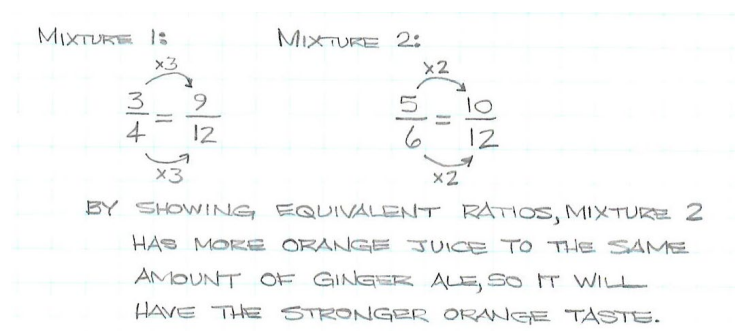 MIXTURE 1: MIXTURE 2:
×3 ×2
3/4 = 9/12 5/6 = 10/12
×3 ×2
BY SHOWING EQUIVALENT RATIOS, MIXTURE 2
HAS MORE ORANGE JUICE TO THE SAME
AMOUNT OF GINGER ALE, SO IT WILL
HAVE THE STRONGER ORANGE TASTE.